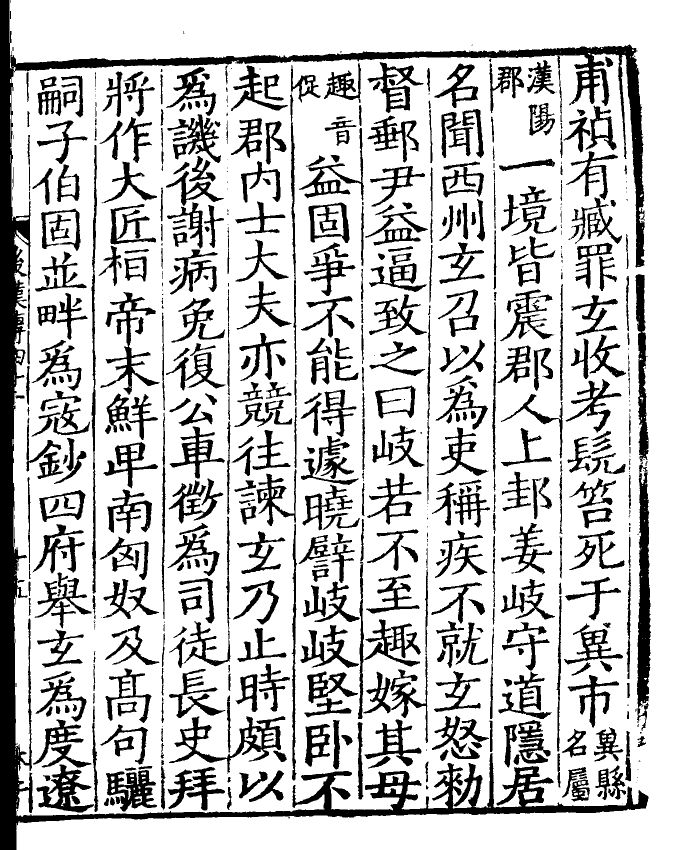 甫禎有臧罪玄收考髡笞死于兾市兾縣名屬
漢陽郡一境皆震郡人上邽姜岐守道隱居
名聞西州玄召以爲吏稱疾不就玄怒勑
督郵尹益逼致之曰岐若不至趣嫁其母
趣音促益固爭不能得遽曉譬岐岐堅卧不
起郡内士大夫亦競往諫玄乃止時頗以
爲譏後謝病免復公車徵爲司徒長史拜
將作大匠桓帝末鮮卑南匈奴及髙句驪
嗣子伯固並畔爲寇鈔四府舉玄爲度遼
後漢傳四十一
十五